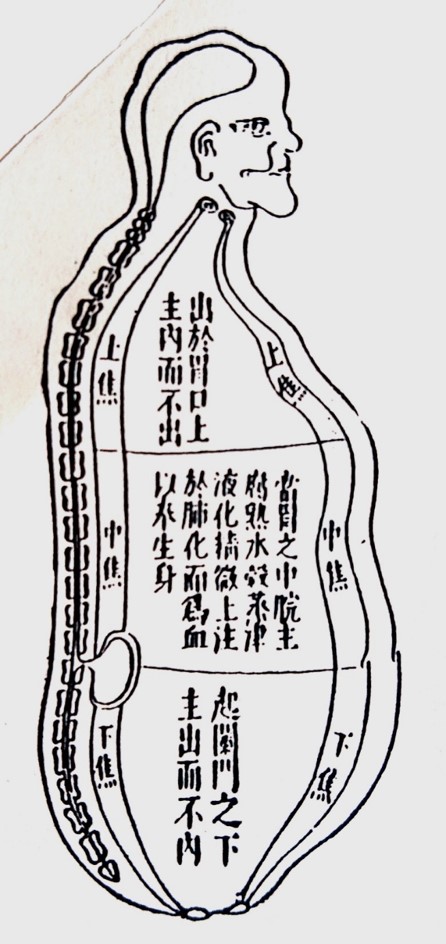 上焦
上焦
出於胃口上
主內而不出
中焦
中焦
當胃之中脘主
腐熟水穀蒸津
液化精微上注
於肺化而爲血
以奉生身
下焦
下焦
起闌門之下
主出而不內